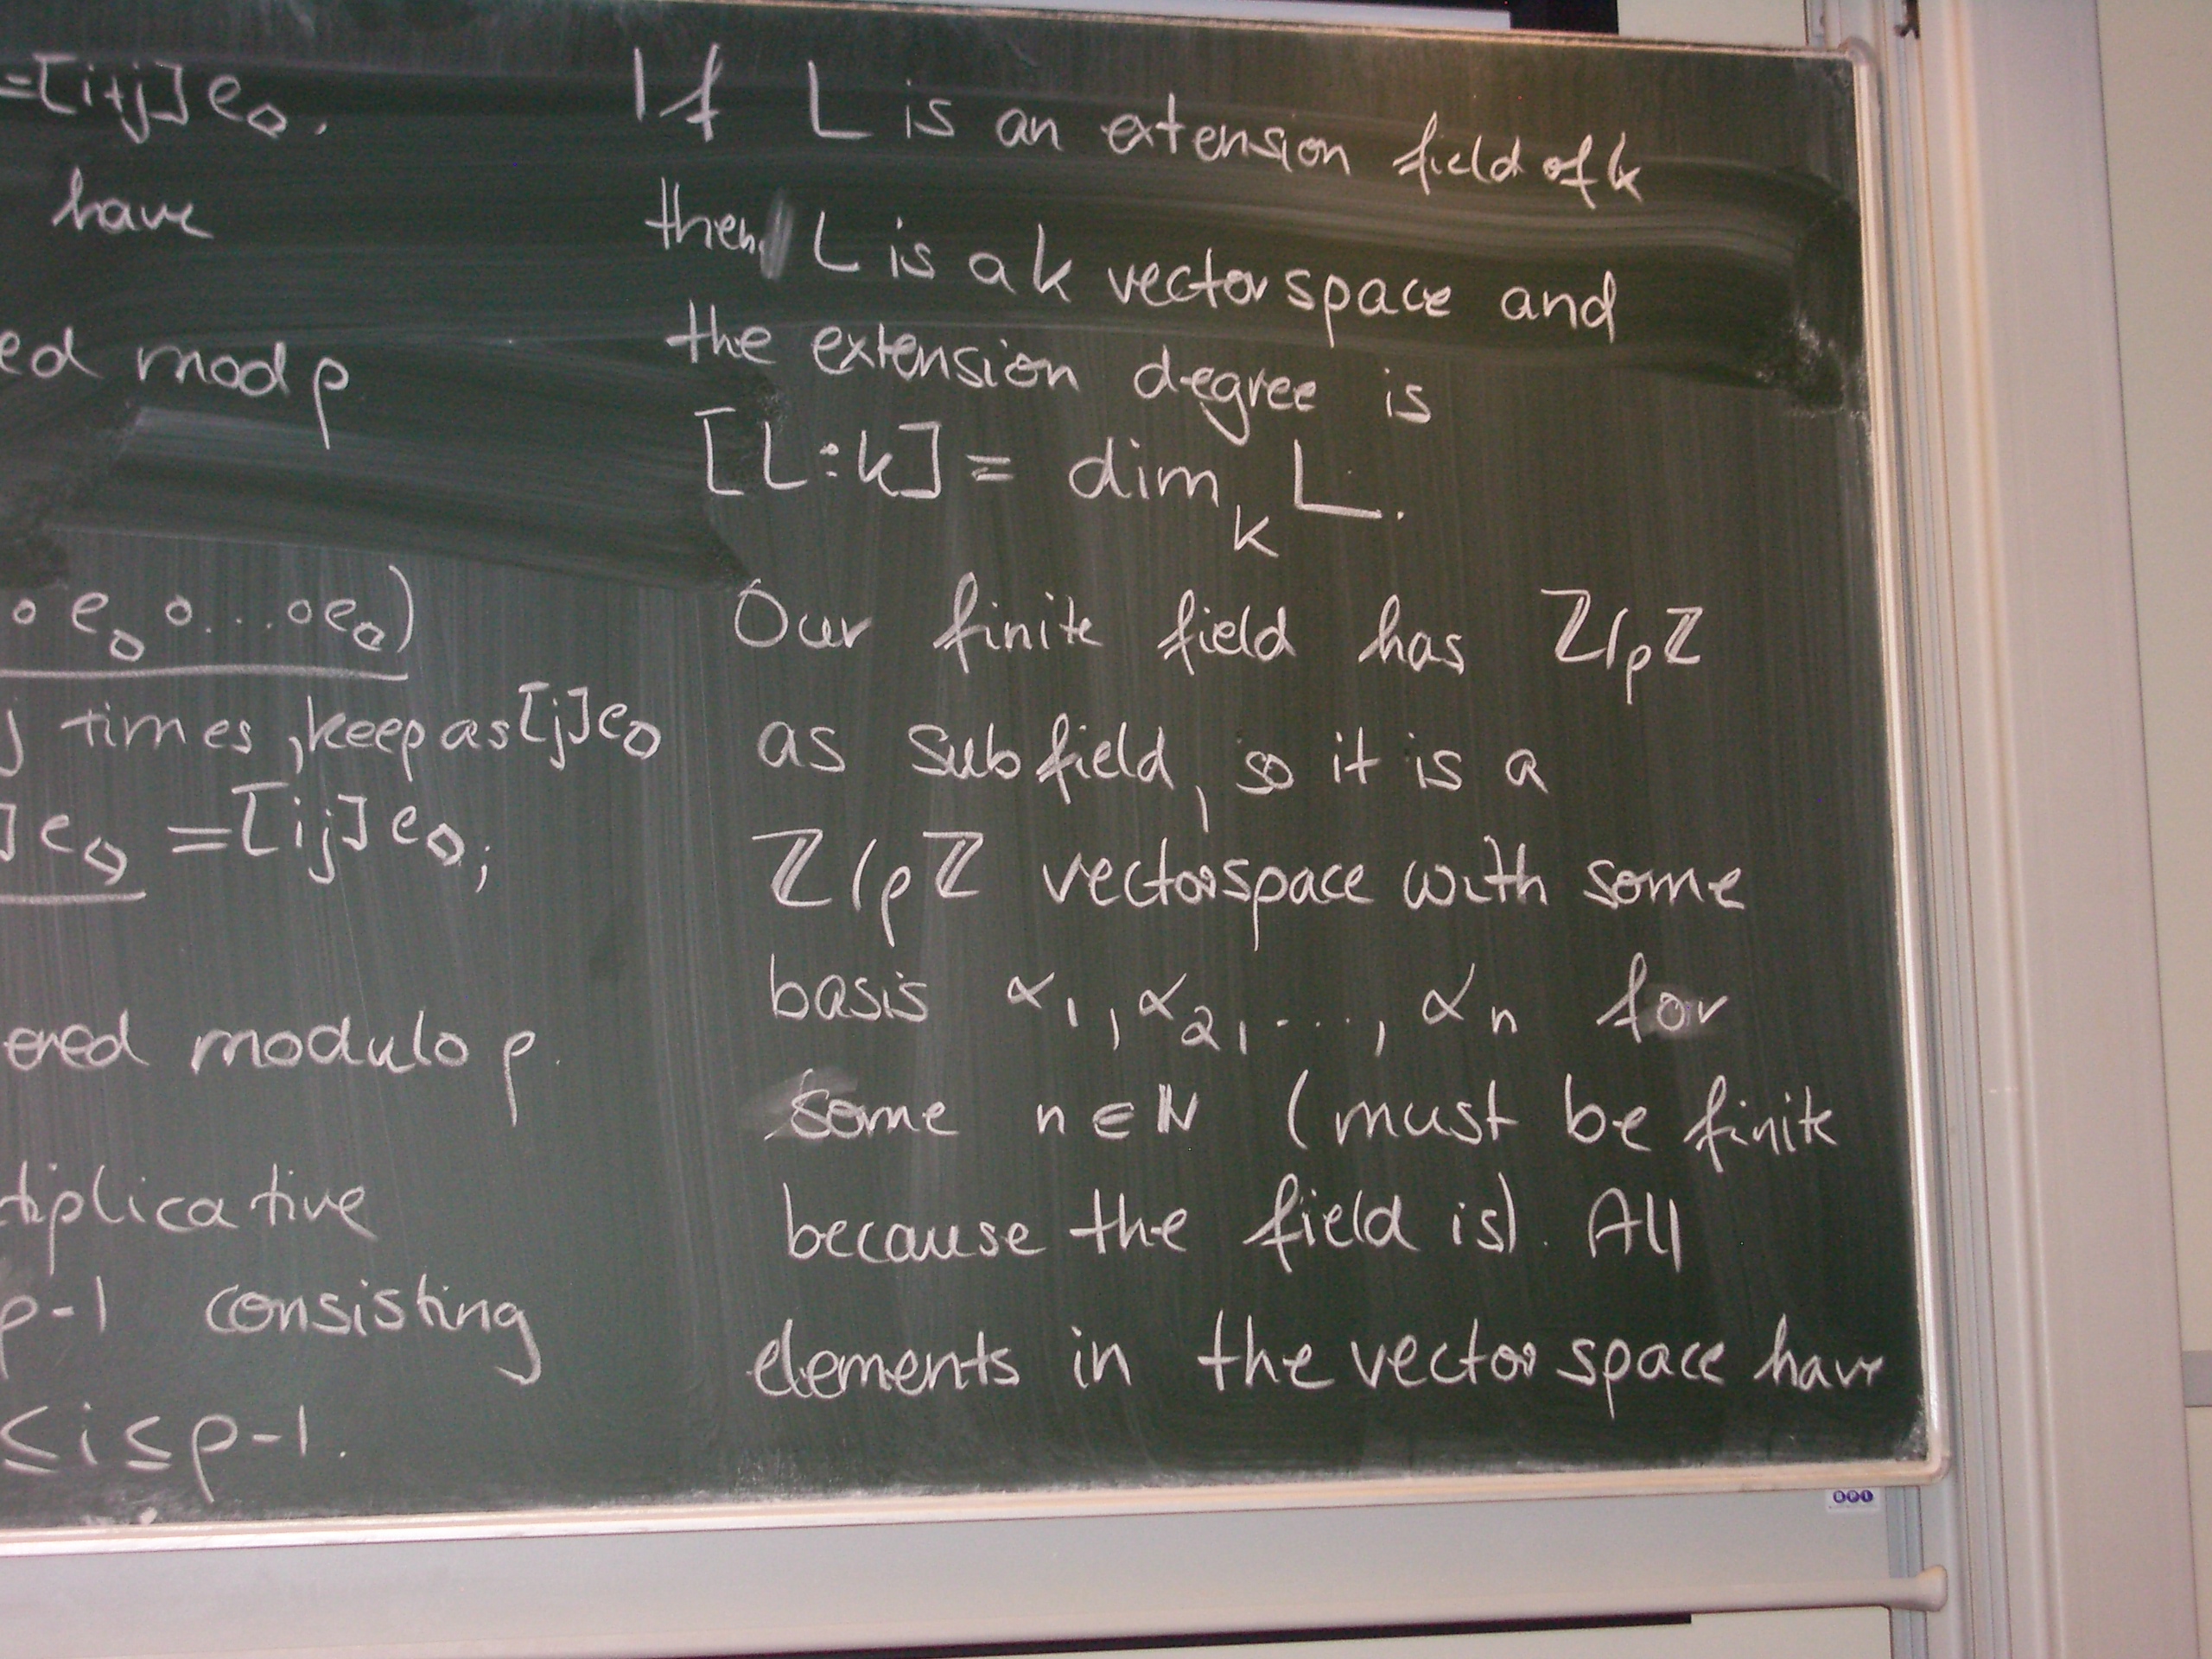 =[i+j]e◇.
have
ed mod p
∘ e◇ ∘...∘e◇)
j times, keep as [j]e◇
]e◇ = [ij]e◇;
ered modulo p.
tiplicative
p-1 consisting
≤ i ≤ p-1.
If L is an extension field of k
then L is a k vectorspace and
the extension degree is
[L:k] = dim_k L.
Our finite field has ℤ/pℤ
as subfield, so it is a
ℤ/pℤ vectorspace with some
basis α₁, α₂, ..., αₙ for
some n∈ℕ (must be finite
because the field is). All
elements in the vectorspace have
BPI